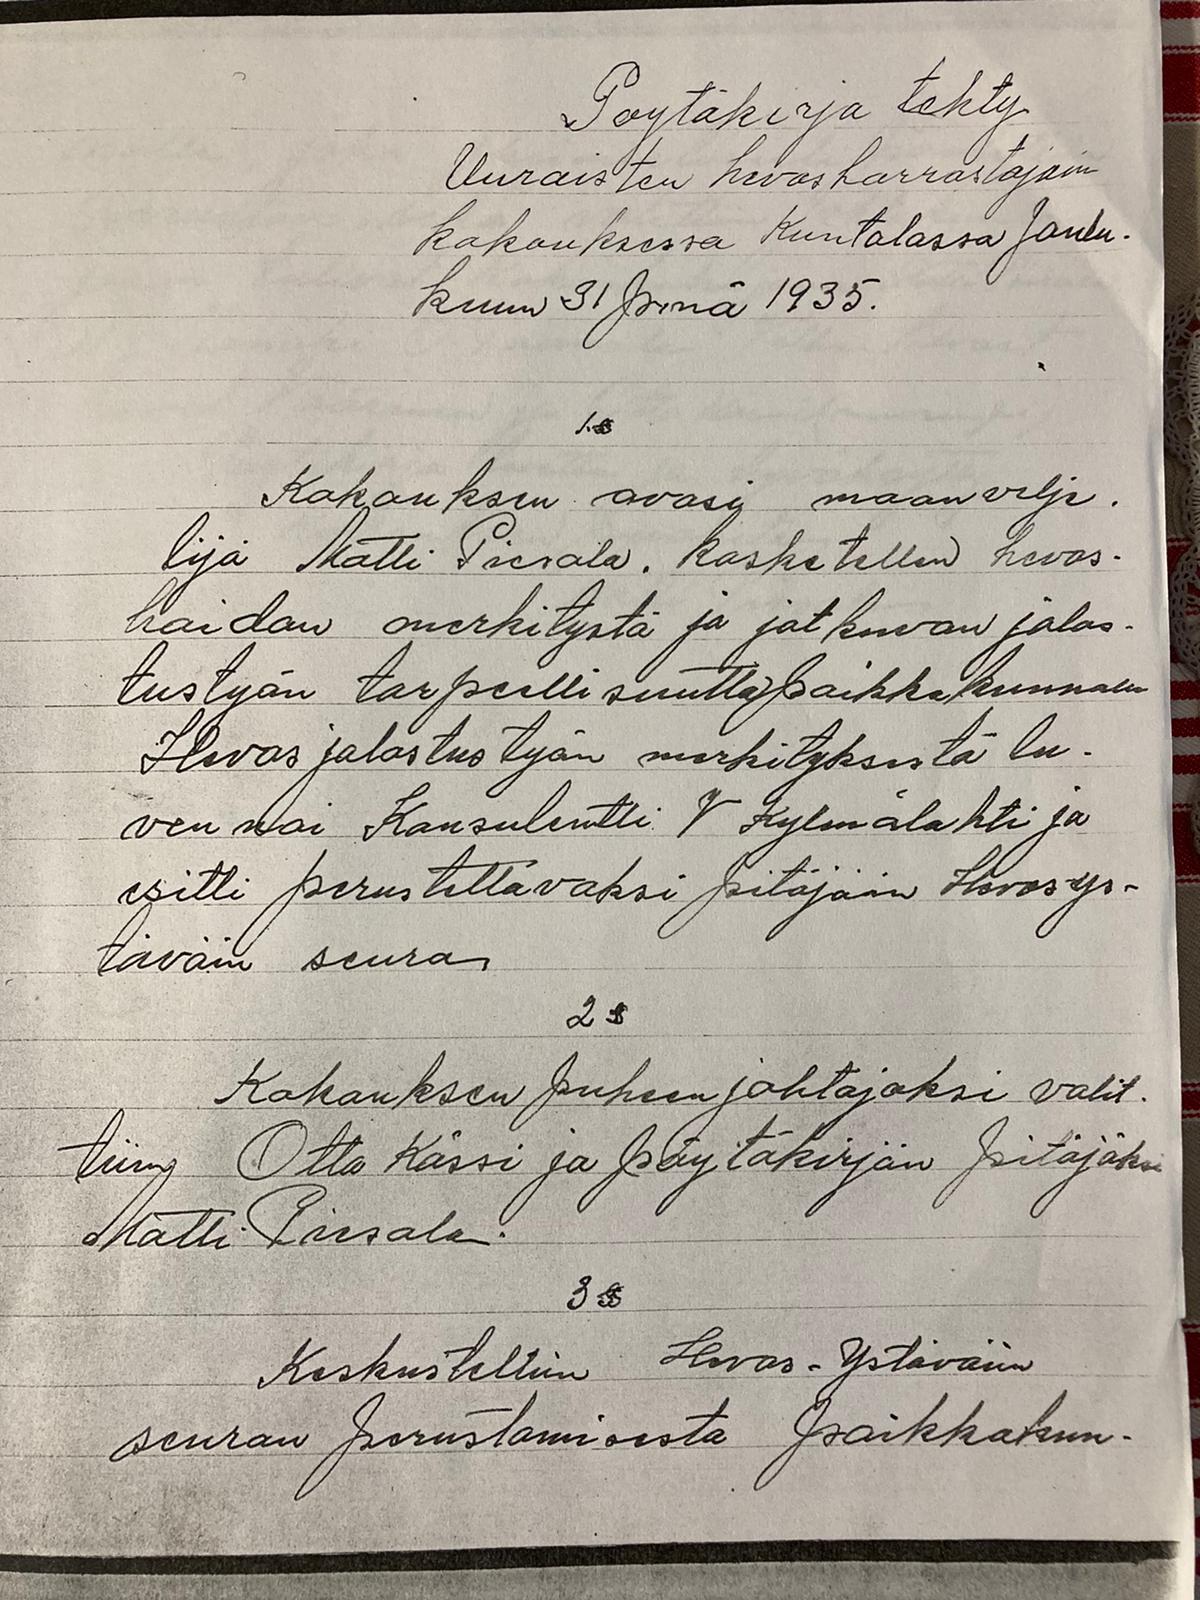 Pöytäkirja tehty
Uuraisten hevosharrastajain
kokouksessa Kuntalassa Joulu-
kuun 31 p:nä 1935.
1 §
Kokouksen avasi maanvilje-
lijä Matti Piesala. kosketellen hevos-
hoidon merkitystä ja jatkuvan jalos-
tustyön tarpeellisuutta paikkakunnalla
Hevosjalostustyön merkityksestä lu-
ennoi Konsulentti V Kylmälahti ja
esitti perustettavaksi pitäjään Hevosys-
täväin seuran
2 §
Kokouksen puheenjohtajaksi valit-
tiin Otto Kässi ja pöytäkirjan pitäjäksi
Matti Piesala.
3 §
Keskusteltiin Hevos-Ystäväin
seuran perustamisesta paikkakun-